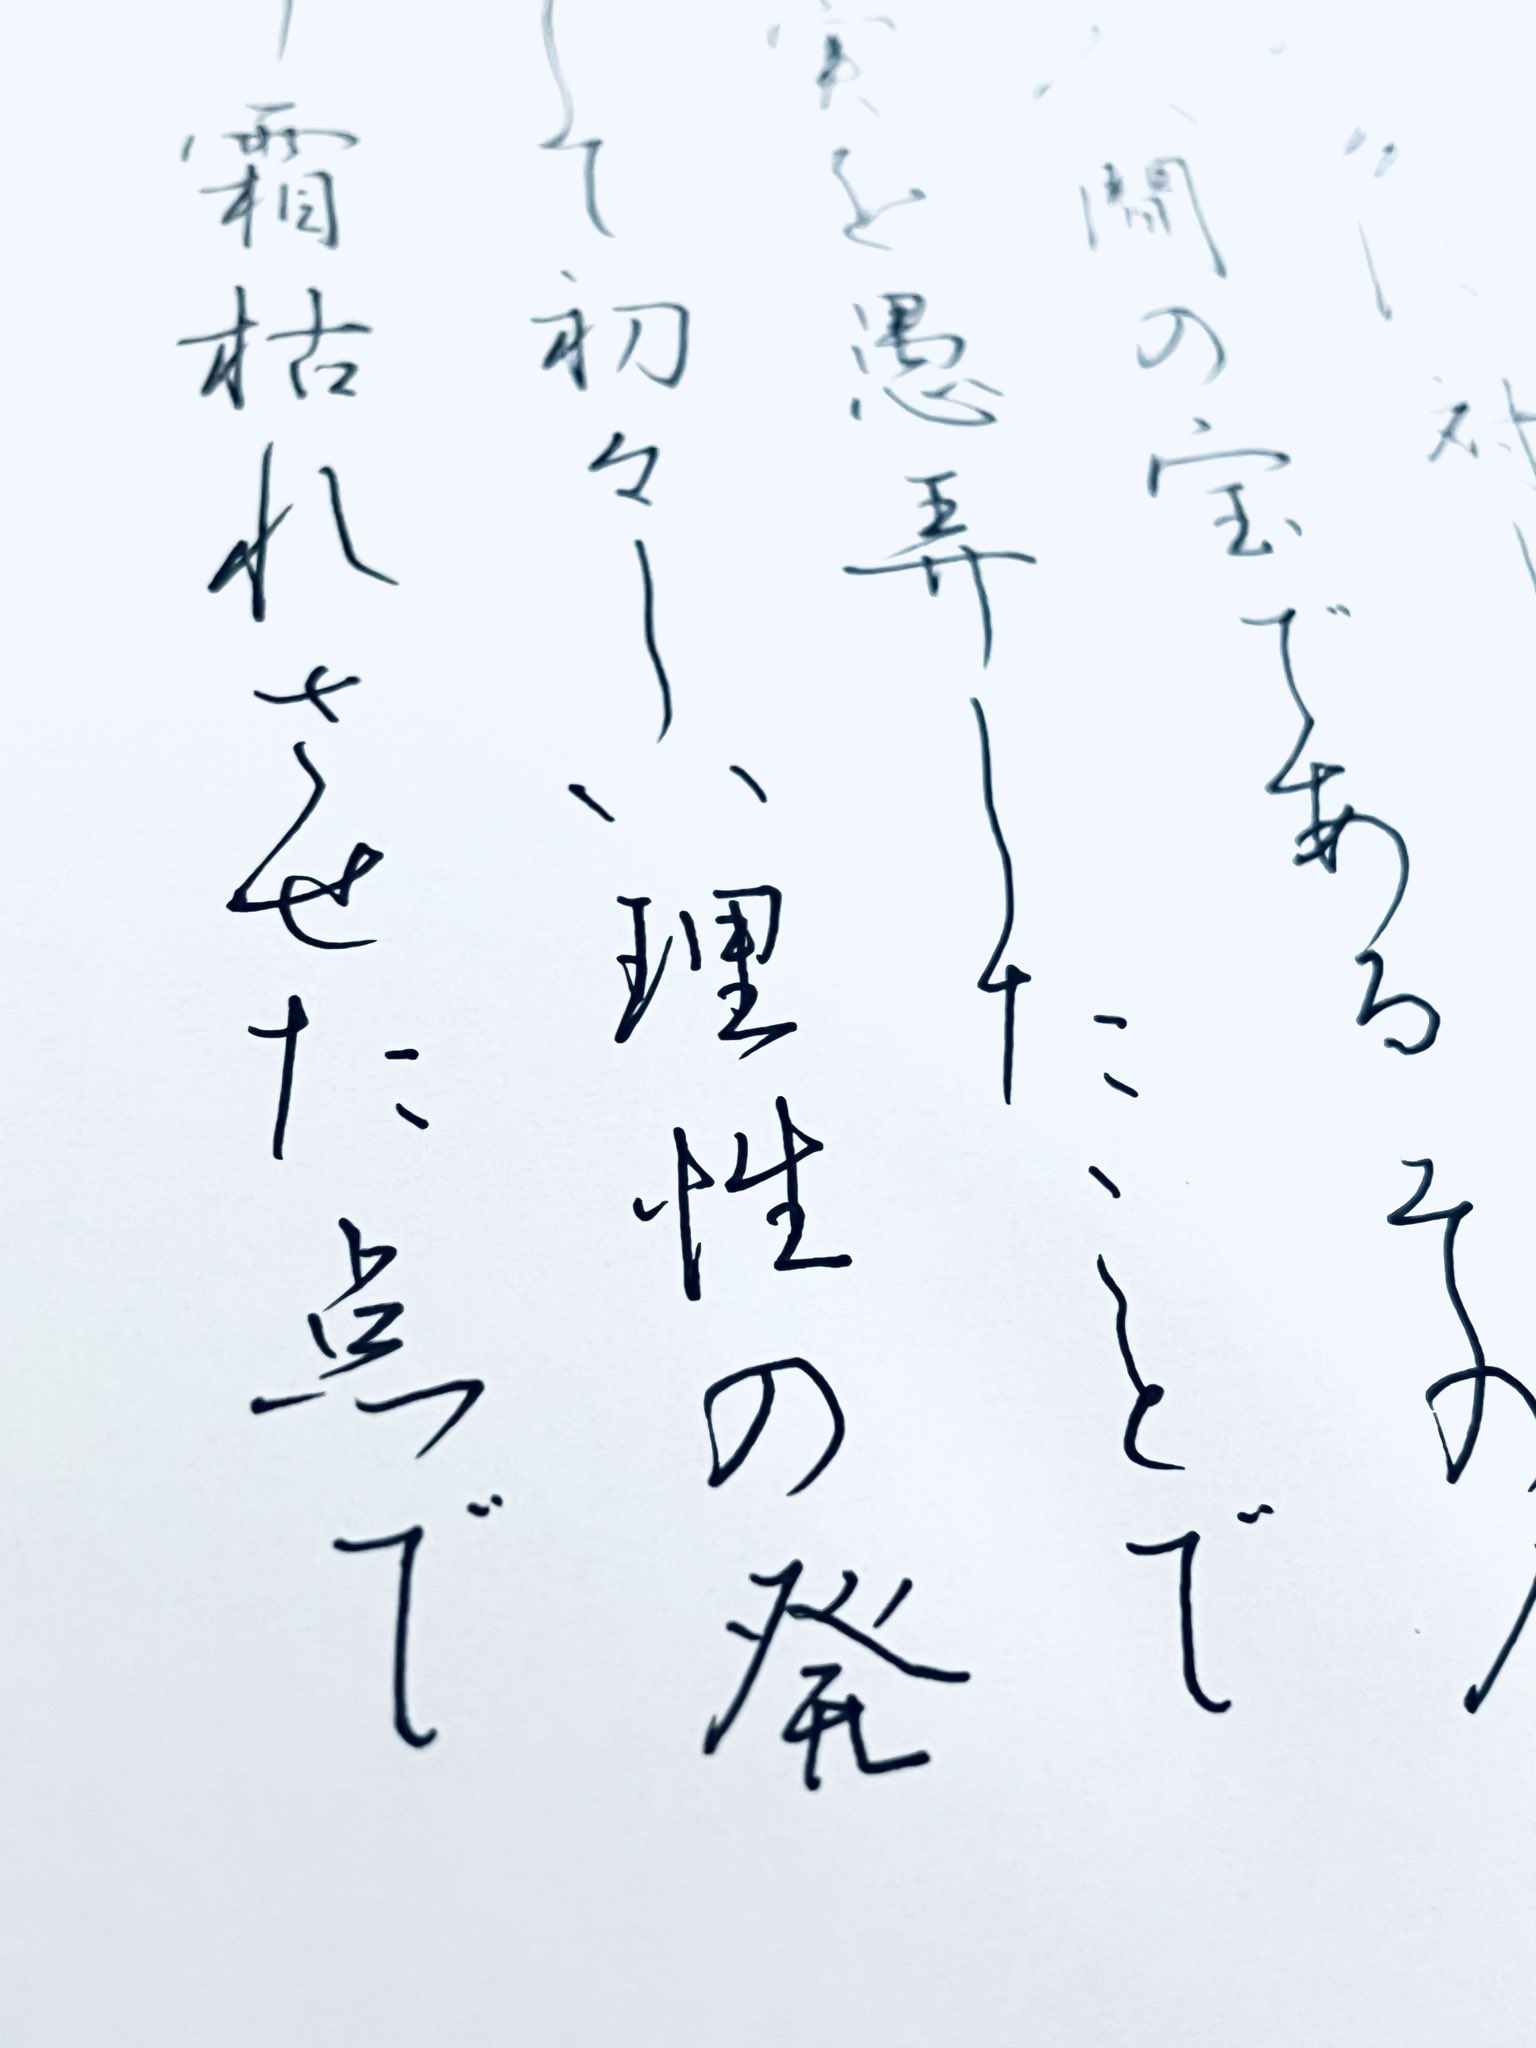 対
人間の宝である その
実を愚弄したことで
して初々しい理性の発
霜枯れさせた点で